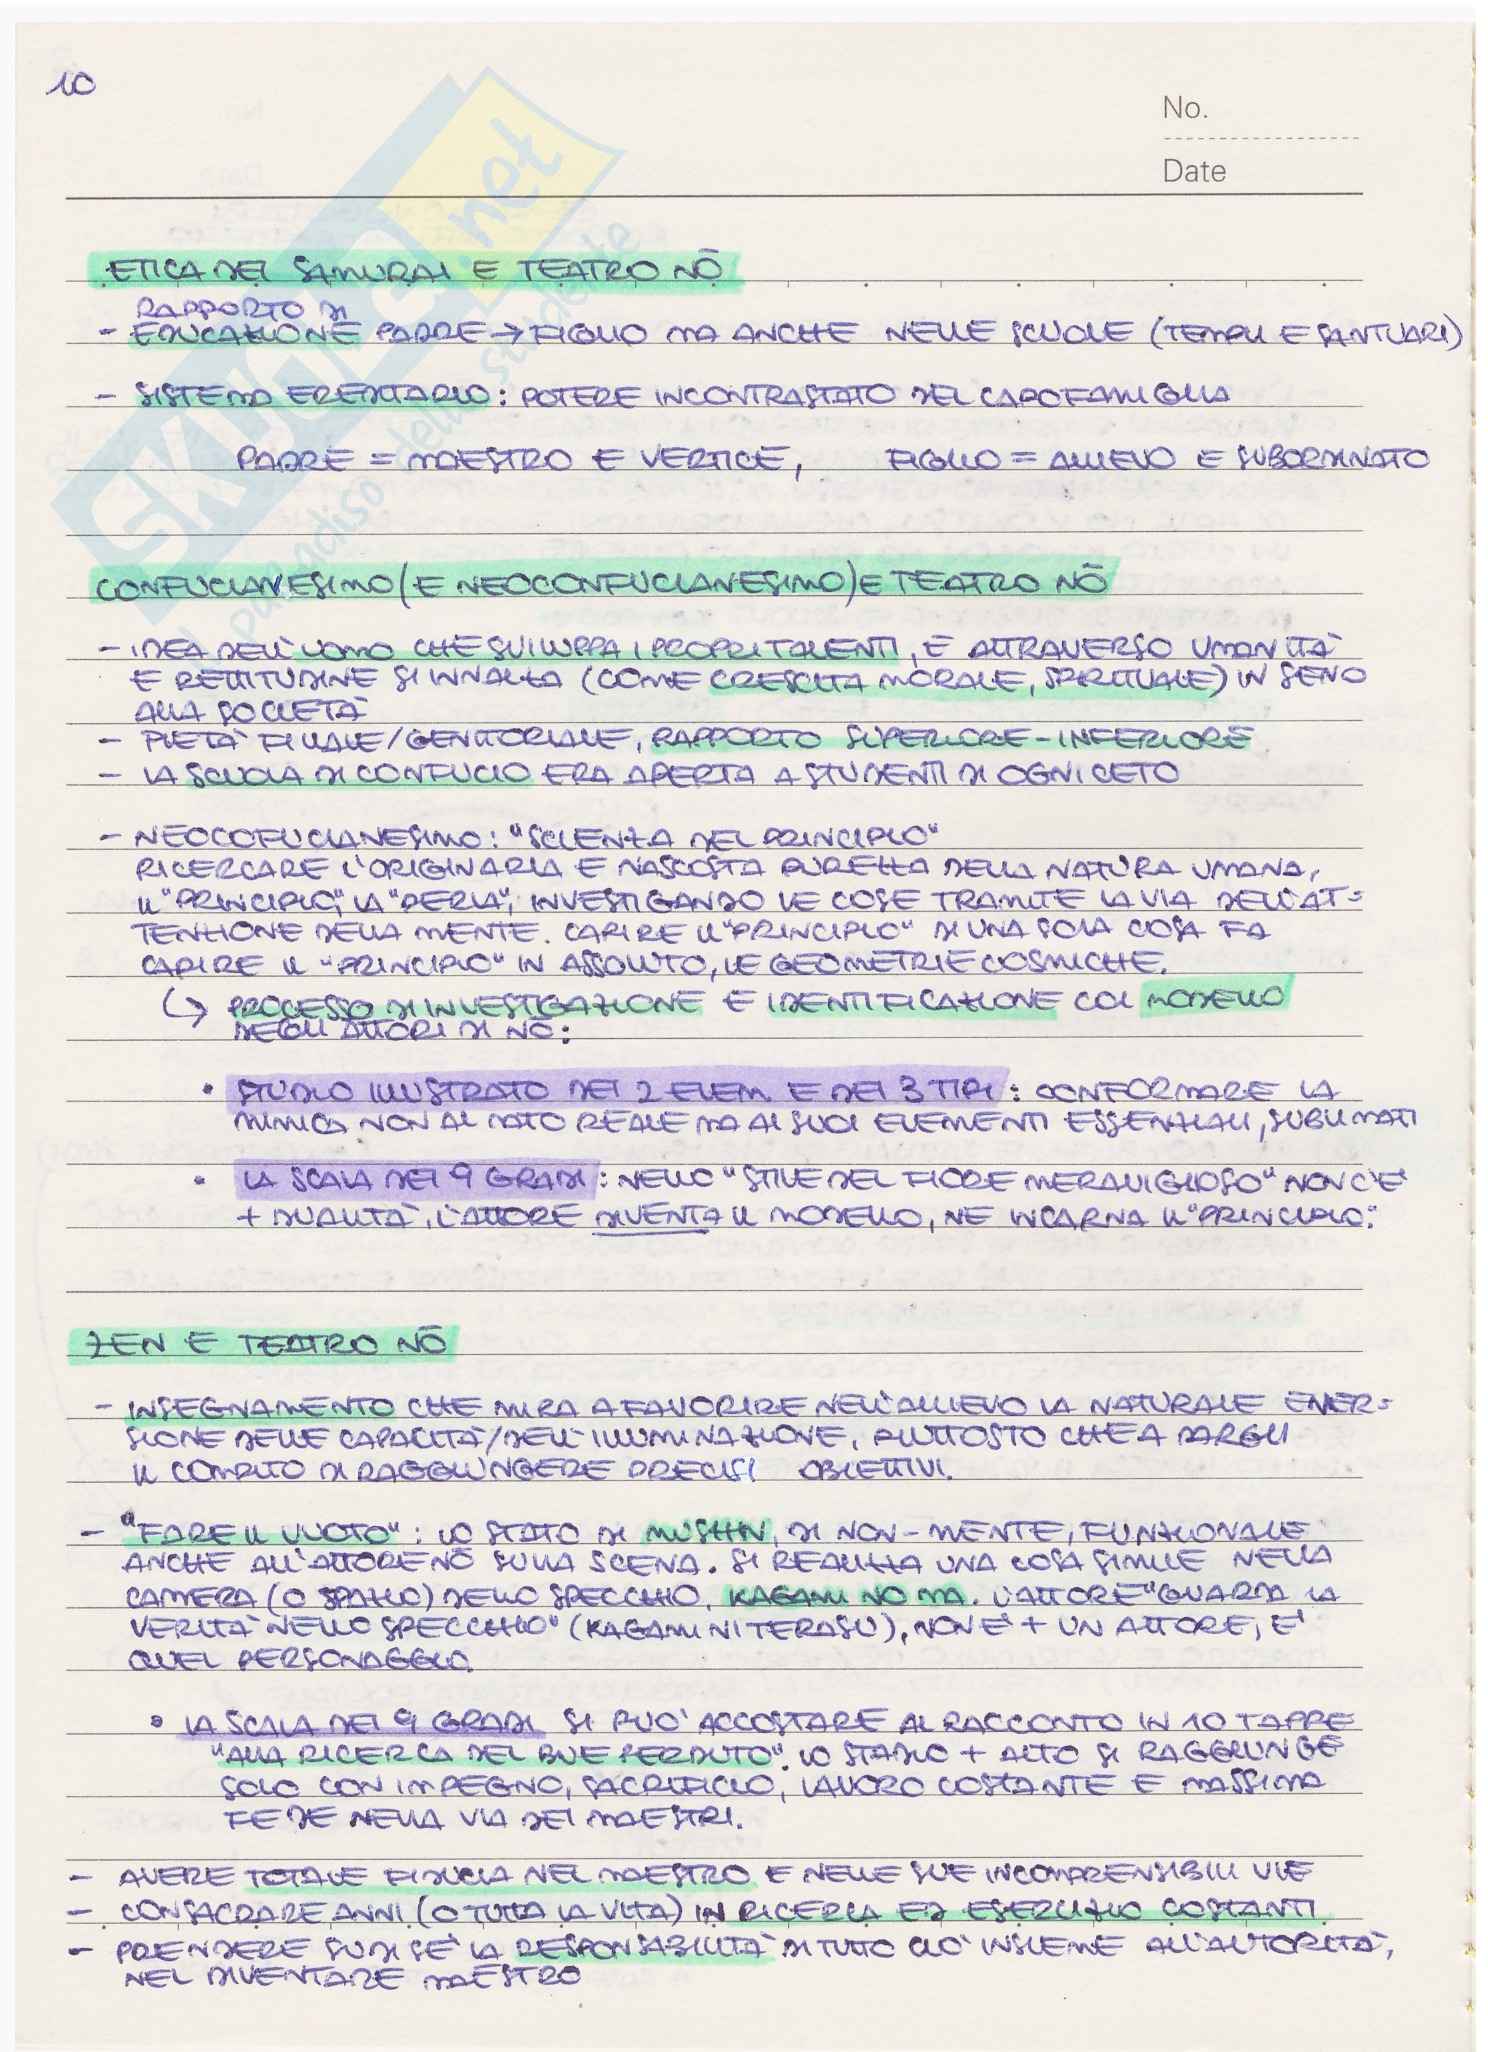 10
No.
Date
ETICA DEI SAMURAI E TEATRO NŌ
RAPPORTO DI
- EDUCAZIONE PADRE → FIGLIO MA ANCHE NELLE SCUOLE (TEMPLI E SANTUARI)
- SISTEMA EREDITARIO: POTERE INCONTRASTATO DEL CAPOFAMIGLIA
PADRE = MAESTRO E VERTICE, FIGLIO = ALLIEVO E SUBORDINATO
CONFUCIANESIMO (E NEOCONFUCIANESIMO) E TEATRO NŌ
- IDEA DELL'UOMO CHE SVILUPPA I PROPRI TALENTI, E ATTRAVERSO UMANITÀ
E RETTITUDINE SI INNALZA (COME CRESCITA MORALE, SPIRITUALE) IN SENO
ALLA SOCIETÀ
- PIETÀ FILIALE/GENITORIALE, RAPPORTO SUPERIORE-INFERIORE
- LA SCUOLA DI CONFUCIO ERA APERTA A STUDENTI DI OGNI CETO
- NEOCOFUCIANESIMO: "SCIENZA DEL PRINCIPIO"
RICERCARE L'ORIGINARIA E NASCOSTA PUREZZA DELLA NATURA UMANA,
IL "PRINCIPIO", LA "PERLA", INVESTIGANDO LE COSE TRAMITE LA VIA DELL'AT=
TENZIONE DELLA MENTE. CAPIRE IL "PRINCIPIO" DI UNA SOLA COSA FA
CAPIRE IL "PRINCIPIO" IN ASSOLUTO, LE GEOMETRIE COSMICHE.
↳ PROCESSO DI INVESTIGAZIONE E IDENTIFICAZIONE COL MODELLO
DEGLI ATTORI DI NŌ:
• STUDIO ILLUSTRATO DEI 2 ELEM. E DEI 3 TIPI: CONFORMARE LA
MIMICA NON AL DATO REALE MA AI SUOI ELEMENTI ESSENZIALI, SUBLIMATI
• LA SCALA DEI 9 GRADI: NELLO "STILE DEL FIORE MERAVIGLIOSO" NON C'È
+ DUALITÀ, L'ATTORE DIVENTA IL MODELLO, NE INCARNA IL "PRINCIPIO".
ZEN E TEATRO NŌ
- INSEGNAMENTO CHE MIRA A FAVORIRE NELL'ALLIEVO LA NATURALE EMER=
SIONE DELLE CAPACITÀ/DELL'ILLUMINAZIONE, PIUTTOSTO CHE A DARGLI
IL COMPITO DI RAGGIUNGERE PRECISI OBIETTIVI.
- "FARE IL VUOTO": LO STATO DI MUSHIN, DI NON-MENTE, FUNZIONALE
ANCHE ALL'ATTORE NŌ SULLA SCENA. SI REALIZZA UNA COSA SIMILE NELLA
CAMERA (O SPAZIO) DELLO SPECCHIO, KAGAMI NO MA. L'ATTORE "GUARDA LA
VERITÀ NELLO SPECCHIO" (KAGAMI NI TERASU), NON È + UN ATTORE, È
QUEL PERSONAGGIO.
• LA SCALA DEI 9 GRADI SI PUÒ ACCOSTARE AL RACCONTO IN 10 TAPPE
"ALLA RICERCA DEL BUE PERDUTO". LO STADIO + ALTO SI RAGGIUNGE
SOLO CON IMPEGNO, SACRIFICIO, LAVORO COSTANTE E MASSIMA
FEDE NELLA VIA DEI MAESTRI.
- AVERE TOTALE FIDUCIA NEL MAESTRO E NELLE SUE INCOMPRENSIBILI VIE
- CONSACRARE ANNI (O TUTTA LA VITA) IN RICERCA ED ESERCIZIO COSTANTI
- PRENDERE SU DI SÉ LA RESPONSABILITÀ DI TUTTO CIÒ INSIEME ALL'AUTORITÀ,
NEL DIVENTARE MAESTRO
SKUOLA.net
il paradiso dello studente